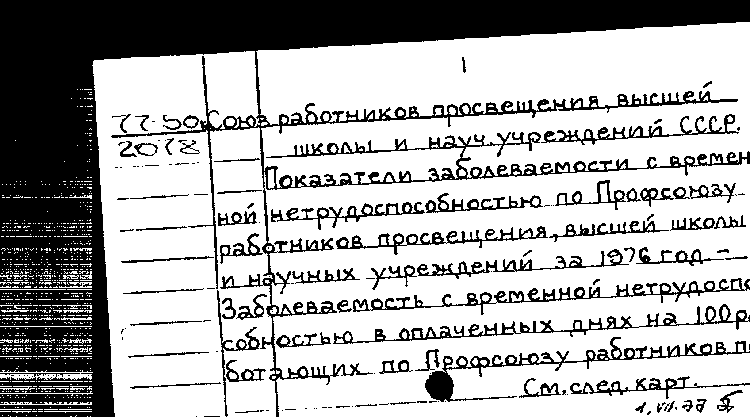 1
77-50к Союз работников просвещения, высшей
2078 школы и науч. учреждений СССР.
Показатели заболеваемости с времен
ной нетрудоспособностью по Профсоюзу
работников просвещения, высшей школы
и научных учреждений за 1976 год –
Заболеваемость с временной нетрудоспо
собностью в оплаченных днях на 100 ра
ботающих по Профсоюзу работников п
См. след. карт.
1.VII.77